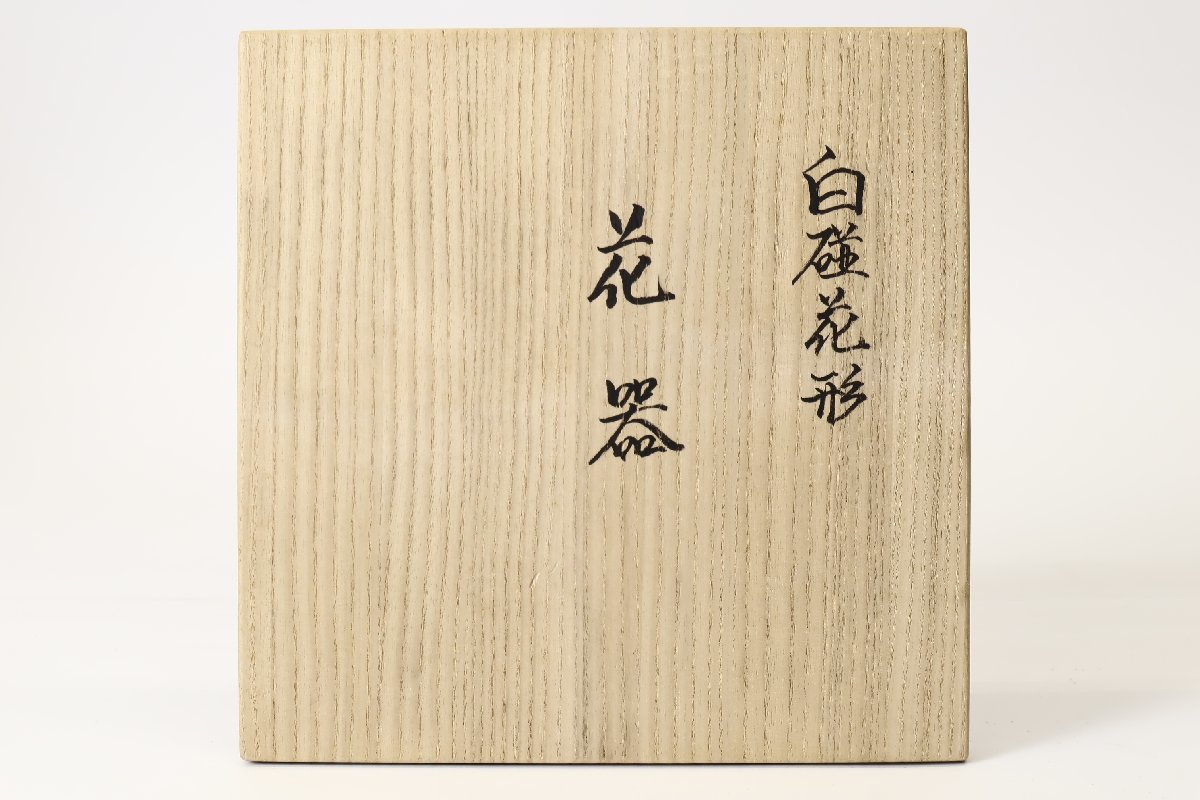 白磁花形
花器